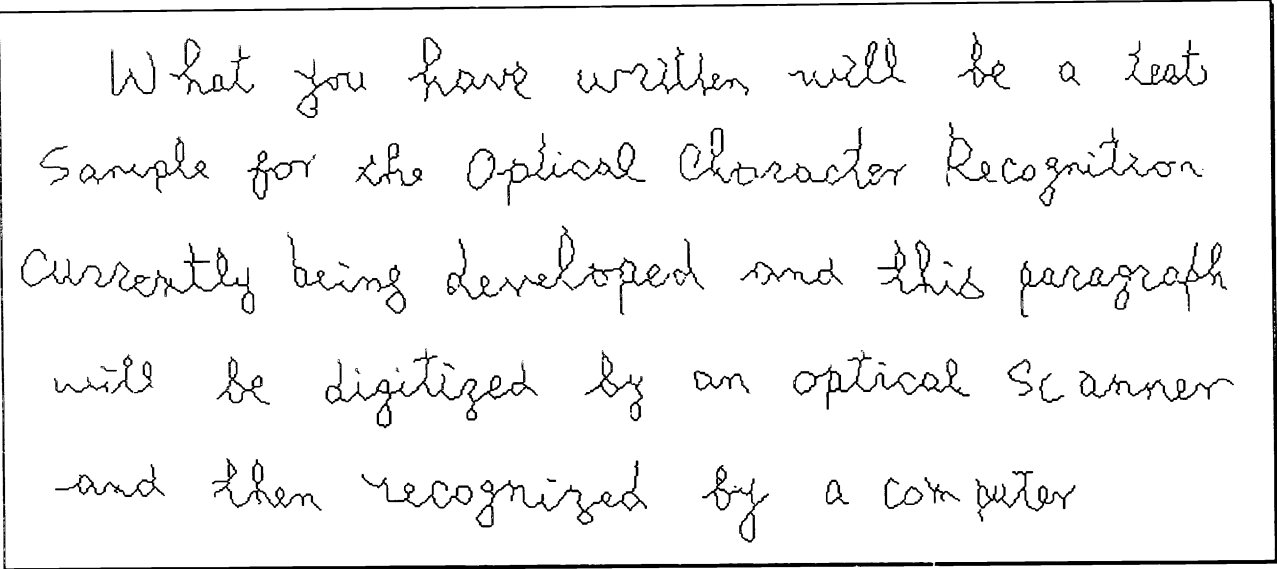 What you have written will be a test
Sample for the Optical Character Recognition
Currently being developed and this paragraph
will be digitized by an optical Scanner
and then recognized by a computer